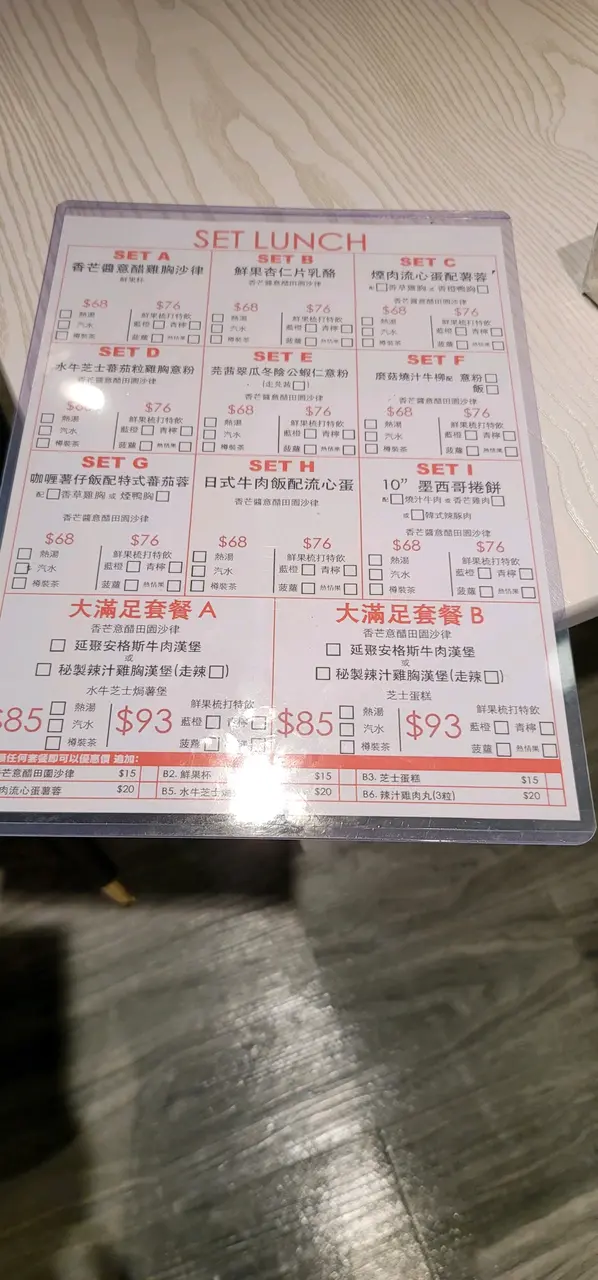 SET LUNCH
SET A
香芒醬意醋雞胸沙律
鮮果杯
$68 $76
熱湯 鮮果梳打特飲
汽水 藍橙 青檸
樽裝茶 菠蘿 熱情果
SET B
鮮果杏仁片乳酪
香芒醬意醋田園沙律
$68 $76
熱湯 鮮果梳打特飲
汽水 藍橙 青檸
樽裝茶 菠蘿 熱情果
SET C
煙肉流心蛋配薯蓉
配 香草雞胸 或 香橙鴨胸
香芒醬意醋田園沙律
$68 $76
熱湯 鮮果梳打特飲
汽水 藍橙 青檸
樽裝茶 菠蘿 熱情果
SET D
水牛芝士蕃茄粒雞胸意粉
香芒醬意醋田園沙律
$76
熱湯 鮮果梳打特飲
汽水 藍橙 青檸
樽裝茶 菠蘿 熱情果
SET E
芫茜翠瓜冬陰公蝦仁意粉
(走芫茜)
香芒醬意醋田園沙律
$68 $76
熱湯 鮮果梳打特飲
汽水 藍橙 青檸
樽裝茶 菠蘿 熱情果
SET F
磨菇燒汁牛柳配 意粉
飯
香芒醬意醋田園沙律
$68 $76
熱湯 鮮果梳打特飲
汽水 藍橙 青檸
樽裝茶 菠蘿 熱情果
SET G
咖喱薯仔飯配特式蕃茄蓉
配 香草雞胸 或 煙鴨胸
香芒醬意醋田園沙律
$68 $76
熱湯 鮮果梳打特飲
汽水 藍橙 青檸
樽裝茶 菠蘿 熱情果
SET H
日式牛肉飯配流心蛋
香芒醬意醋田園沙律
$68 $76
熱湯 鮮果梳打特飲
汽水 藍橙 青檸
樽裝茶 菠蘿 熱情果
SET I
10” 墨西哥捲餅
配 燒汁牛肉 或 香芒雞肉
或 韓式辣豚肉
香芒醬意醋田園沙律
$68 $76
熱湯 鮮果梳打特飲
汽水 藍橙 青檸
樽裝茶 菠蘿 熱情果
大滿足套餐 A
香芒意醋田園沙律
延聚安格斯牛肉漢堡
或
秘製辣汁雞胸漢堡(走辣)
水牛芝士焗薯堡
$85 $93
熱湯 鮮果梳打特飲
汽水 藍橙 青檸
樽裝茶 菠蘿
大滿足套餐 B
香芒意醋田園沙律
延聚安格斯牛肉漢堡
或
秘製辣汁雞胸漢堡(走辣)
芝士蛋糕
$85 $93
熱湯 鮮果梳打特飲
汽水 藍橙 青檸
樽裝茶 菠蘿 熱情果
任何套餐即可以優惠價 追加:
芒意醋田園沙律 $15 B2. 鮮果杯 $15 B3. 芝士蛋糕 $15
肉流心蛋薯蓉 $20 B5. 水牛芝士焗 $20 B6. 辣汁雞肉丸(3粒) $20